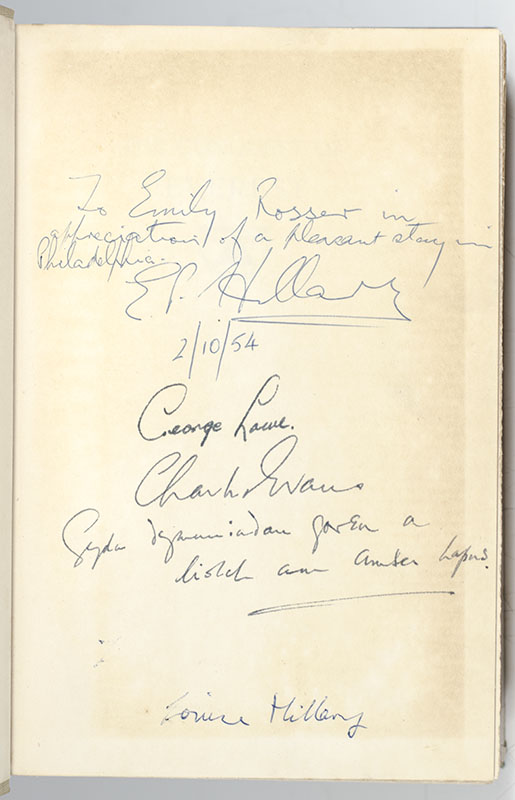 To Emily Rosser in
appreciation of a pleasant stay in
Philadelphia.
E.P. Hillary
2/10/54
George Lowe.
Charles Evans
Gyda dymuniadau gorau a
diolch am amser hapus.
Louise Hillary